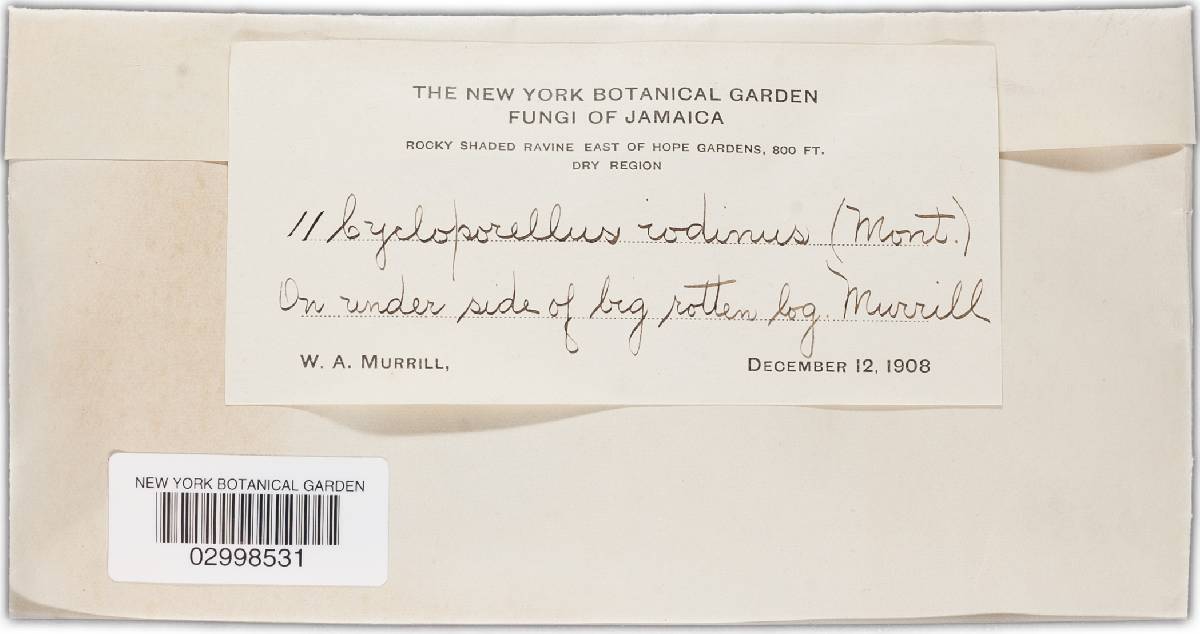 THE NEW YORK BOTANICAL GARDEN
FUNGI OF JAMAICA
ROCKY SHADED RAVINE EAST OF HOPE GARDENS, 800 FT.
DRY REGION
11 Cycloporellus iodinus (Mont.)
On under side of big rotten log. Murrill
W. A. MURRILL, DECEMBER 12, 1908
NEW YORK BOTANICAL GARDEN
02998531